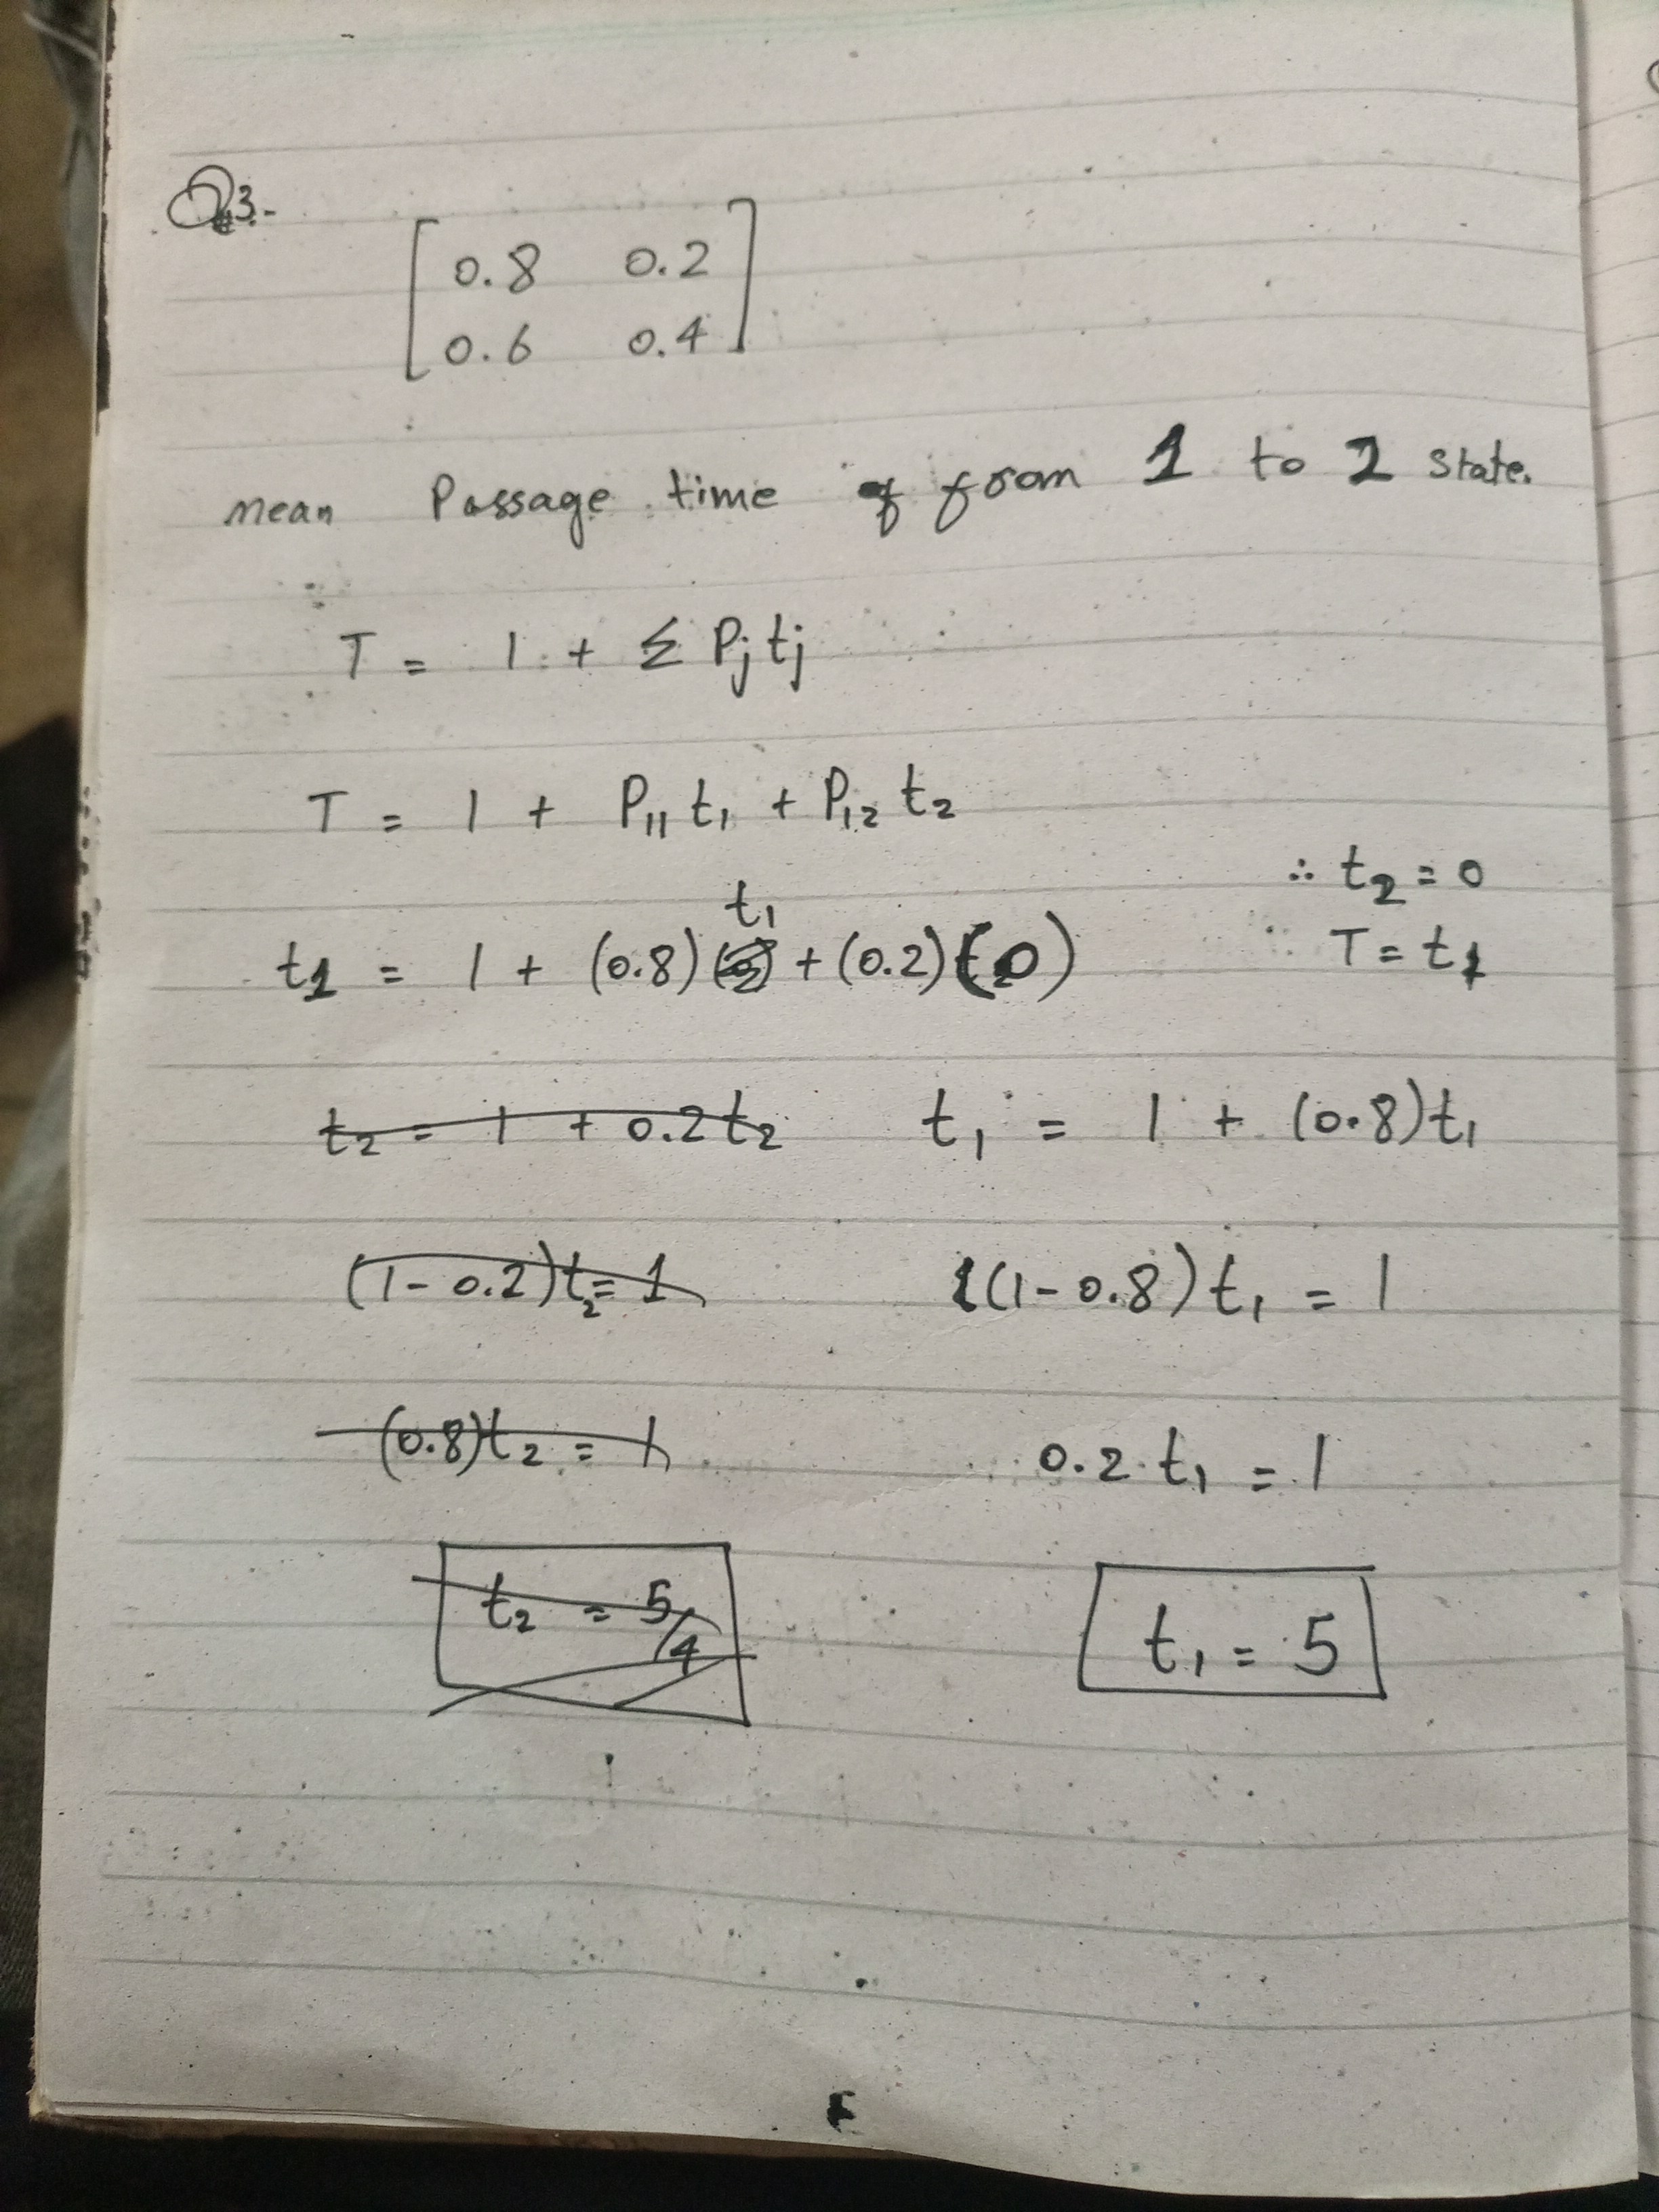 Q3.-
[ 0.8 0.2
0.6 0.4 ]
mean Passage time from 1 to 2 state.
T = 1 + Σ Pj tj
T = 1 + P11 t1 + P12 t2
∴ t2 = 0
t1
t1 = 1 + (0.8) + (0.2)(0)
T = t1
t2 = 1 + 0.2 t2 t1 = 1 + (0.8)t1
(1 - 0.2)t2 = 1 (1-0.8) t1 = 1
(0.8)t2 = 1 0.2 t1 = 1
t2 = 5/4 t1 = 5